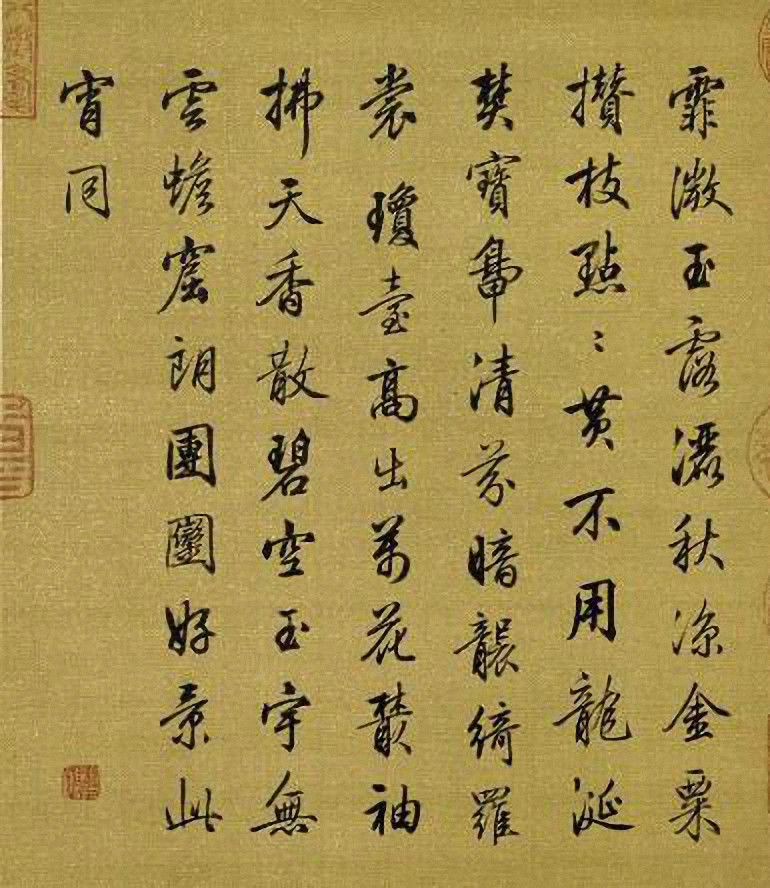 霏微玉露灑秋凉金粟
攢枝點〻黄不用龍涎
焚寶鴨清芬暗襲綺羅
裳瓊臺高出萬花叢袖
拂天香散碧空玉宇無
雲蟾窟朗團圞好景此
宵同